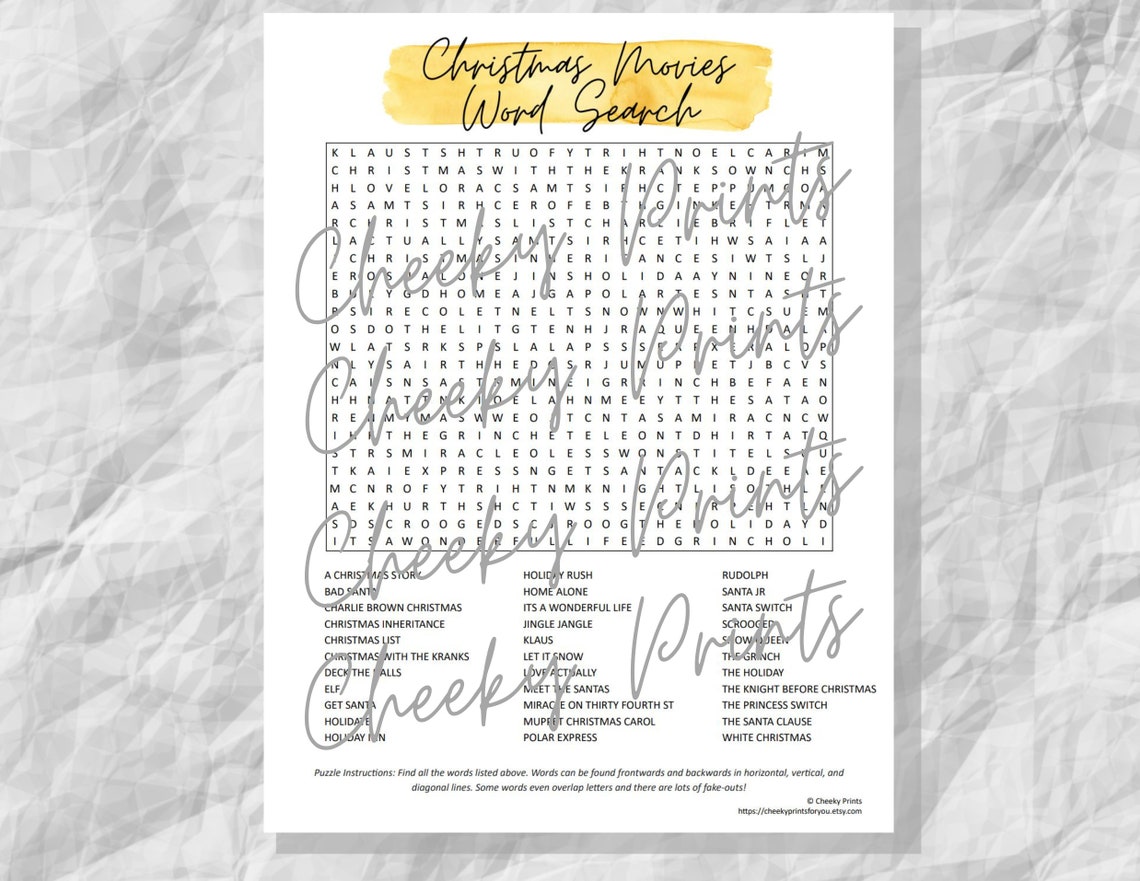 Christmas Movies
Word Search
K L A U S T S H T R U O F Y T R I H T N O E L C A R I M
C H R I S T M A S W I T H T H E K R A N K S O W N C H S
H L O V E L O R A C S A M T S I R H C T E P P U M C O A
A S A M T S I R H C E R O F E B T H G I N K E H T R M
R C H R I S T M A S L I S T C H A R L I E B R I F L E T
L A C T U A L L Y S A M T S I R H C E T I H W S A I A A
C H R I S T M A S I N H E R I T A N C E S I W T S L J
E R O S A L O N E J I N S H O L I D A A Y N I N E O R
B L Y G D H O M E A J G A P O L A R T E S N T A S T
P S I R E C O L E T N E L T S N O W N W H I T C S U E M
O S D O T H E L I T G T E N H J R A Q U E E N H D A L A
W L A T S R K S P S L A L A P S S S E R P X E R A L O P
N L Y S A I R T H H E D S R J U M U P E T J B C V S
C A I S N S A S T M I N E I G R R I N C H B E F A E N
H H N A T T N K I E L A H N M E E Y T T H E S A T A O
R E N M Y M A S W W E O T C N T A S A M I R A C N C W
I H T H E G R I N C H E T E L E O N T D H I R T A T Q
S T R S M I R A C L E O L E S S W O N S T I T E L S U
T K A I E X P R E S S N G E T S A N T A C K L D E E A E
M C N R O F Y T R I H T N M K N I G H T L I S O T H L
A E K H U R T H S H C T I W S S S E C N I R P E H T L N
S D S C R O O G E D S C R O O G T H E H O L I D A Y D
I T S A W O N D E R F U L L I F E E D G R I N C H O L I
Cheeky Prints
Cheeky Prints
Cheeky Prints
Cheeky Prints
A CHRISTMAS STORY
BAD SANTA
CHARLIE BROWN CHRISTMAS
CHRISTMAS INHERITANCE
CHRISTMAS LIST
CHRISTMAS WITH THE KRANKS
DECK THE HALLS
ELF
GET SANTA
HOLIDATE
HOLIDAY INN
HOLIDAY RUSH
HOME ALONE
ITS A WONDERFUL LIFE
JINGLE JANGLE
KLAUS
LET IT SNOW
LOVE ACTUALLY
MEET THE SANTAS
MIRACLE ON THIRTY FOURTH ST
MUPPET CHRISTMAS CAROL
POLAR EXPRESS
RUDOLPH
SANTA JR
SANTA SWITCH
SCROOGED
SNOW QUEEN
THE GRINCH
THE HOLIDAY
THE KNIGHT BEFORE CHRISTMAS
THE PRINCESS SWITCH
THE SANTA CLAUSE
WHITE CHRISTMAS
Puzzle Instructions: Find all the words listed above. Words can be found frontwards and backwards in horizontal, vertical, and
diagonal lines. Some words even overlap letters and there are lots of fake-outs!
© Cheeky Prints
https://cheekyprintsforyou.etsy.com